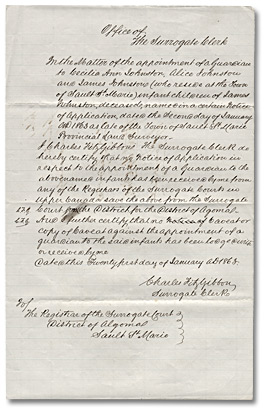 Office of
The Surrogate Clerk
In the Matter of the appointment of a Guardian
to Cecilia Ann Johnston, Alice Johnston
and James Johnston (who reside at the Town
of Sault Ste Marie) infant children of James
Johnston, deceased, named in a certain Notice
of Application, dated the Second day of January
AD 1863 as late of the Town of Sault Ste Marie
Provincial Land Surveyor.
I Charles FitzGibbon The Surrogate Clerk do
hereby certify that no Notice of Application in
respect to the appointment of a Guardian to the
above named infants has been received by me from
any of the Registrars of the Surrogate Courts in
Upper Canada save the above from the Surrogate
Court for the District for the District of Algoma.
And I further certify that no Caveat or
copy of Caveat against the appointment of a
guardian to the said infants has been lodged with
or received by me
Dated this Twenty first day of January AD 1863.
Charles FitzGibbon
Surrogate Clerk
To/
The Registrar of the Surrogate Court
District of Algoma
Sault Ste Marie